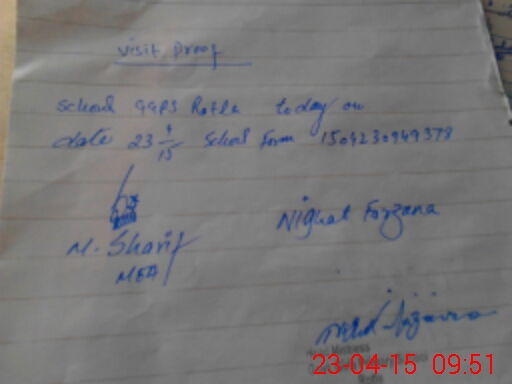 Visit Proof
School GGPS Ratla today on
date 23 4/15 School Form 1504230949378
Nighat Farzana
M. Sharif
MEA
Head Mistress
23-04-15 09:51